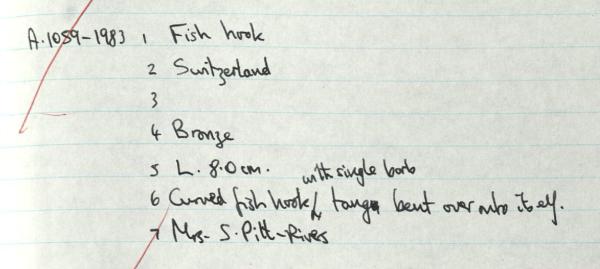 A.1059-1983 1 Fish hook
2 Switzerland
3
4 Bronze
5 L. 8.0cm.
with single barb
6 Curved fish hook/ tang bent over into itself.
7 Mrs. S. Pitt-Rivers